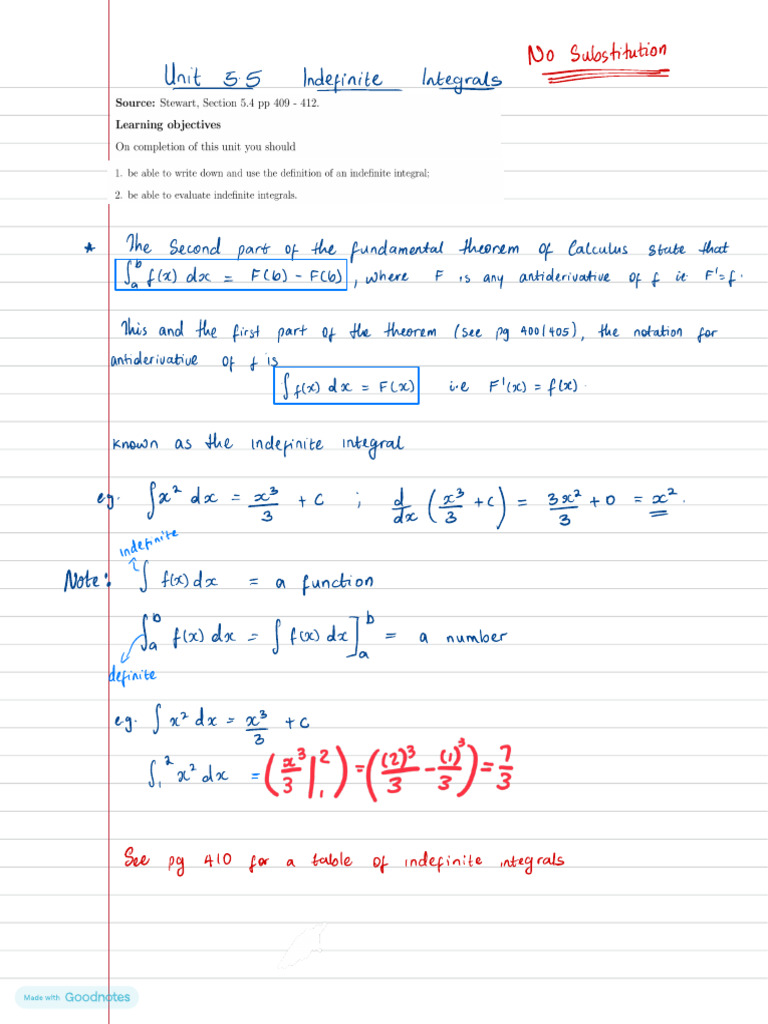 No Substitution
Unit 5.5 Indefinite Integrals
Source: Stewart, Section 5.4 pp 409 - 412.
Learning objectives
On completion of this unit you should
1. be able to write down and use the definition of an indefinite integral;
2. be able to evaluate indefinite integrals.
* The second part of the fundamental theorem of Calculus state that
∫ₐᵇ f(x) dx = F(b) - F(b), where F is any antiderivative of f ie F' = f.
This and the first part of the theorem (see pg 400/405), the notation for
antiderivative of f is
∫ f(x) dx = F(x) i.e F'(x) = f(x).
known as the indefinite integral
eg. ∫ x² dx = x³/3 + C ; d/dx (x³/3 + c) = 3x²/3 + 0 = x².
indefinite
Note: ∫ f(x) dx = a function
∫ₐᵇ f(x) dx = ∫ f(x) dx]ₐᵇ = a number
definite
eg. ∫ x² dx = x³/3 + c
∫₁² x² dx = (x³/3 |₁²) = ((2)³/3 - (1)³/3) = 7/3
See pg 410 for a table of indefinite integrals
Made with Goodnotes